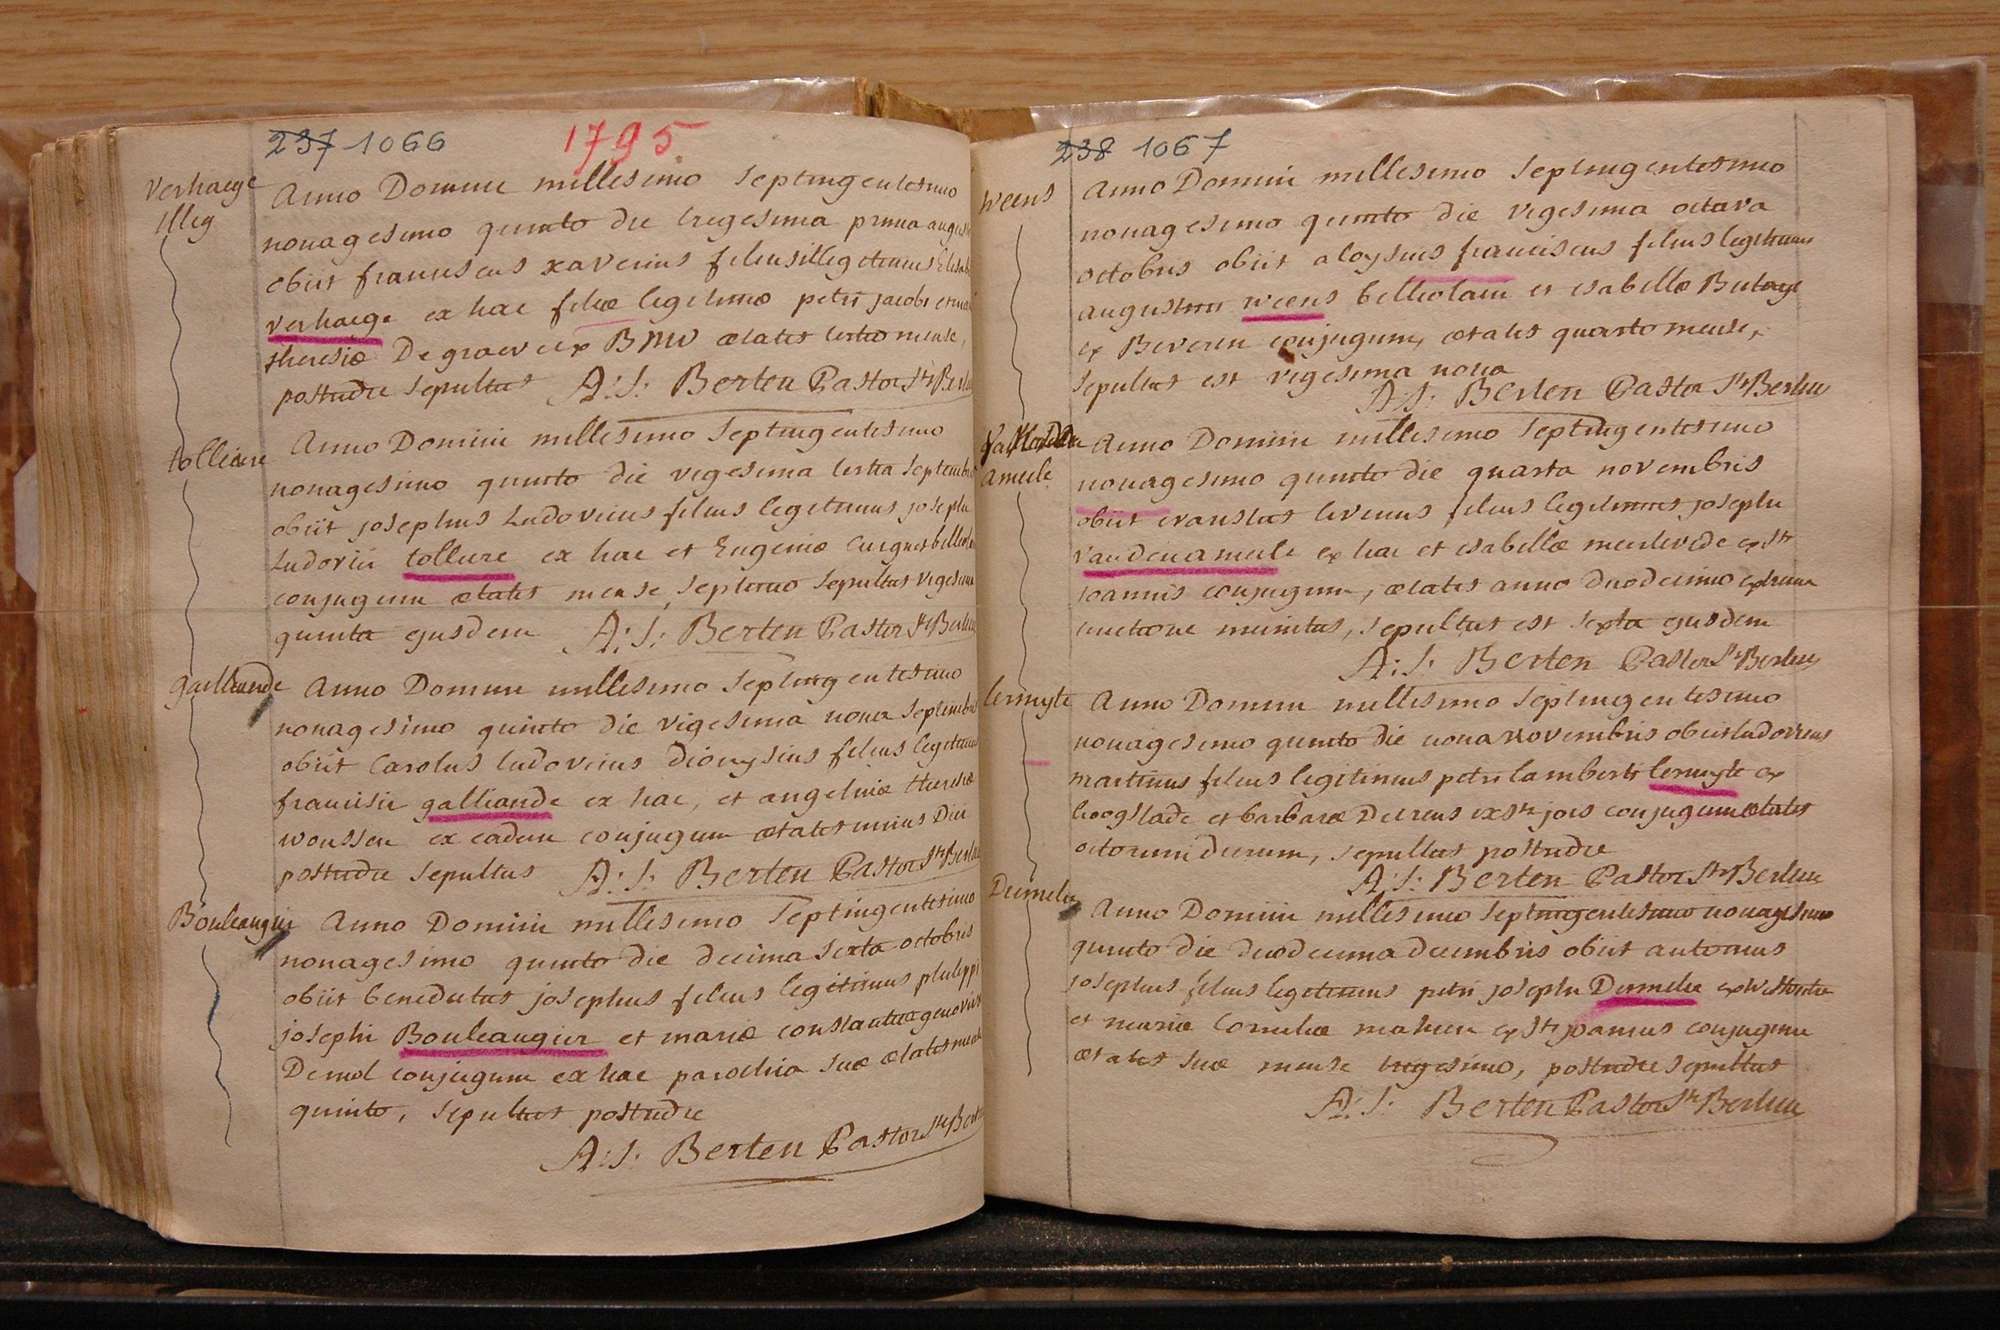 237 1066
1795
Verhaege
illeg
Anno Domini millesimo septingentesimo
nonagesimo quinto die tregesima prima
obiit franciscus xaverius filius illegitimus
verhaege ex hac filiæ legitimæ petri jacobi et
theresiæ Degraeve ex BMV ætatis tertio mense,
postridie sepultus A: J: Berten Pastor Sti
tollicure
Anno Domini millesimo septingentesimo
nonagesimo quinto die vigesima tertia septembris
obiit josephus Ludovicus filius legitimus josephi
Ludovici ex hac et Eugeniæ
conjugum ætatis mense septimo sepultus vigesima
quinta ejusdem A: J: Berten Pastor Sti
galliaude
Anno Domini millesimo septingentesimo
nonagesimo quinto die vigesima nona septembris
obiit Carolus ludovicus dionysius filius legitimus
francisci galliaude ex hac, et angelinæ theresiæ
woussen ex eadem conjugum ætatis unius Diei
postridie sepultus A: J: Berten Pastor Sti
Bouleaugier
Anno Domini millesimo septingentesimo
nonagesimo quinto die decima sexta octobris
obiit benedictus josephus filius legitimus philippi
josephi Bouleaugier et mariæ constantiæ
Demol conjugum ex hac parochia suæ ætatis mense
quinto, sepultus postridie
A: J: Berten Pastor Sti
238 1067
weens
Anno Domini millesimo septingentesimo
nonagesimo quinto die vigesima octava
octobris obiit aloysius franciscus filius legitimus
augustini weens belliolani et isabellæ Butaye
ex Beveren conjugum, ætatis quarto mense,
sepultus est vigesima nona
A: J: Berten Pastor Sti Berlini
amele
Anno Domini millesimo septingentesimo
nonagesimo quinto die quarta novembris
obiit livinus filius legitimus josephi
vandenameele ex hac et isabellæ merlevede ex Sti
joannis conjugum, ætatis anno duodecimo extrema
unctione munitus, sepultus est sexta ejusdem
A: J: Berten Pastor Sti Berlini
lermyte
Anno Domini millesimo septingentesimo
nonagesimo quinto die nona novembris obiit ludovicus
martinus filius legitimus petri lamberti lermyte ex
hoogstade et barbaræ ex Sti jois conjugum ætatis
octo mensium, sepultus postridie
A: J: Berten Pastor Sti Berlini
Dumelie
Anno Domini millesimo septingentesimo nonagesimo
quinto die duodecima decembris obiit antonius
josephus filius legitimus petri josephi Dumelie ex
et mariæ Corneliæ mahieu ex Sti joannis conjugum
ætatis suæ mense trigesimo, postridie sepultus
A: J: Berten Pastor Sti Berlini